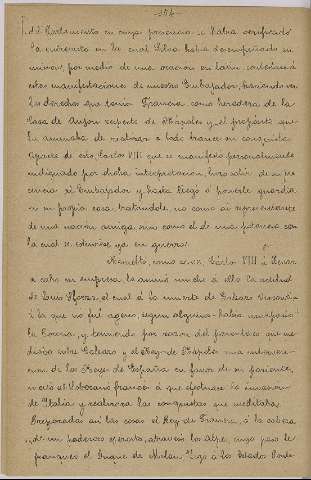 del Parlamento en cuya presencia se había verificado
la entrevista en la cual Silva había desempeñado su
misión, por medio de una oración en latín contestaron á
estas manifestaciones de nuestro Embajador, haciendo ver
los derechos que tenía Francia como heredera de la
Casa de Anjou respecto de Nápoles y el propósito que
la animaba de realizar á todo trance su conquista
Aparte de esto, Carlos VIII que se manifestó personalmente
indignado por dicha interpretación, hizo salir de su pre-
sencia al Embajador y hasta llegó á ponerle guardia
en su propia casa tratándole, no como al representante
de una nación amiga, sino como el de una potencia con
la cual se estuviese ya en guerra.
Resuelto, como se ve, Carlos VIII á llevar
á cabo su empresa le animó mucho á ello la actitud
de Luis Sforza, el cual á la muerte de Galeazo Visconti
á la que no fué ageno, según algunos, había usurpado
la Corona, y temiendo por razón del parentesco que me-
diaba entre Galeazo y el Rey de Nápoles una interven-
ción de los Reyes de España en favor de su pariente,
incitó al Soberano francés á que efectuase la invasión
de Italia y realizara las conquistas que meditaba.
Preparadas así las cosas el Rey de Francia, á la cabeza
de un poderoso ejército, atravesó los Alpes, cuyo paso le
franqueó el Duque de Milán, llegó á los Estados Ponti-